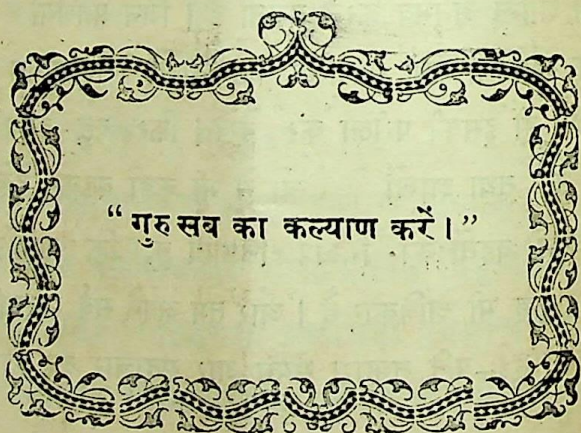 “गुरु सब का कल्याण करें।”